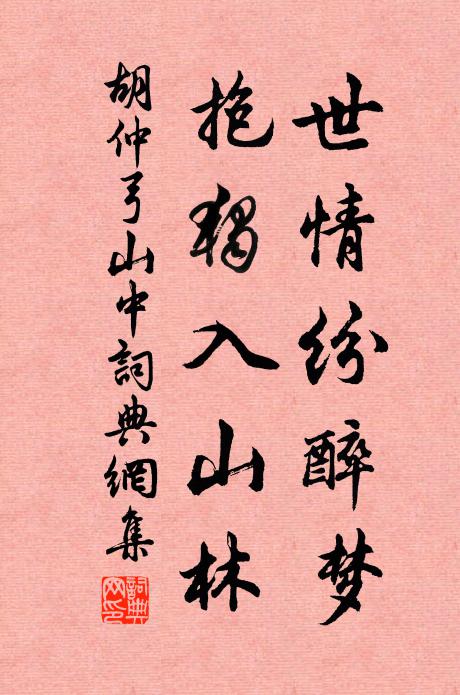 世情纷醉梦
抱獨入山林
胡仲弓山中詞典網集
詞典網印